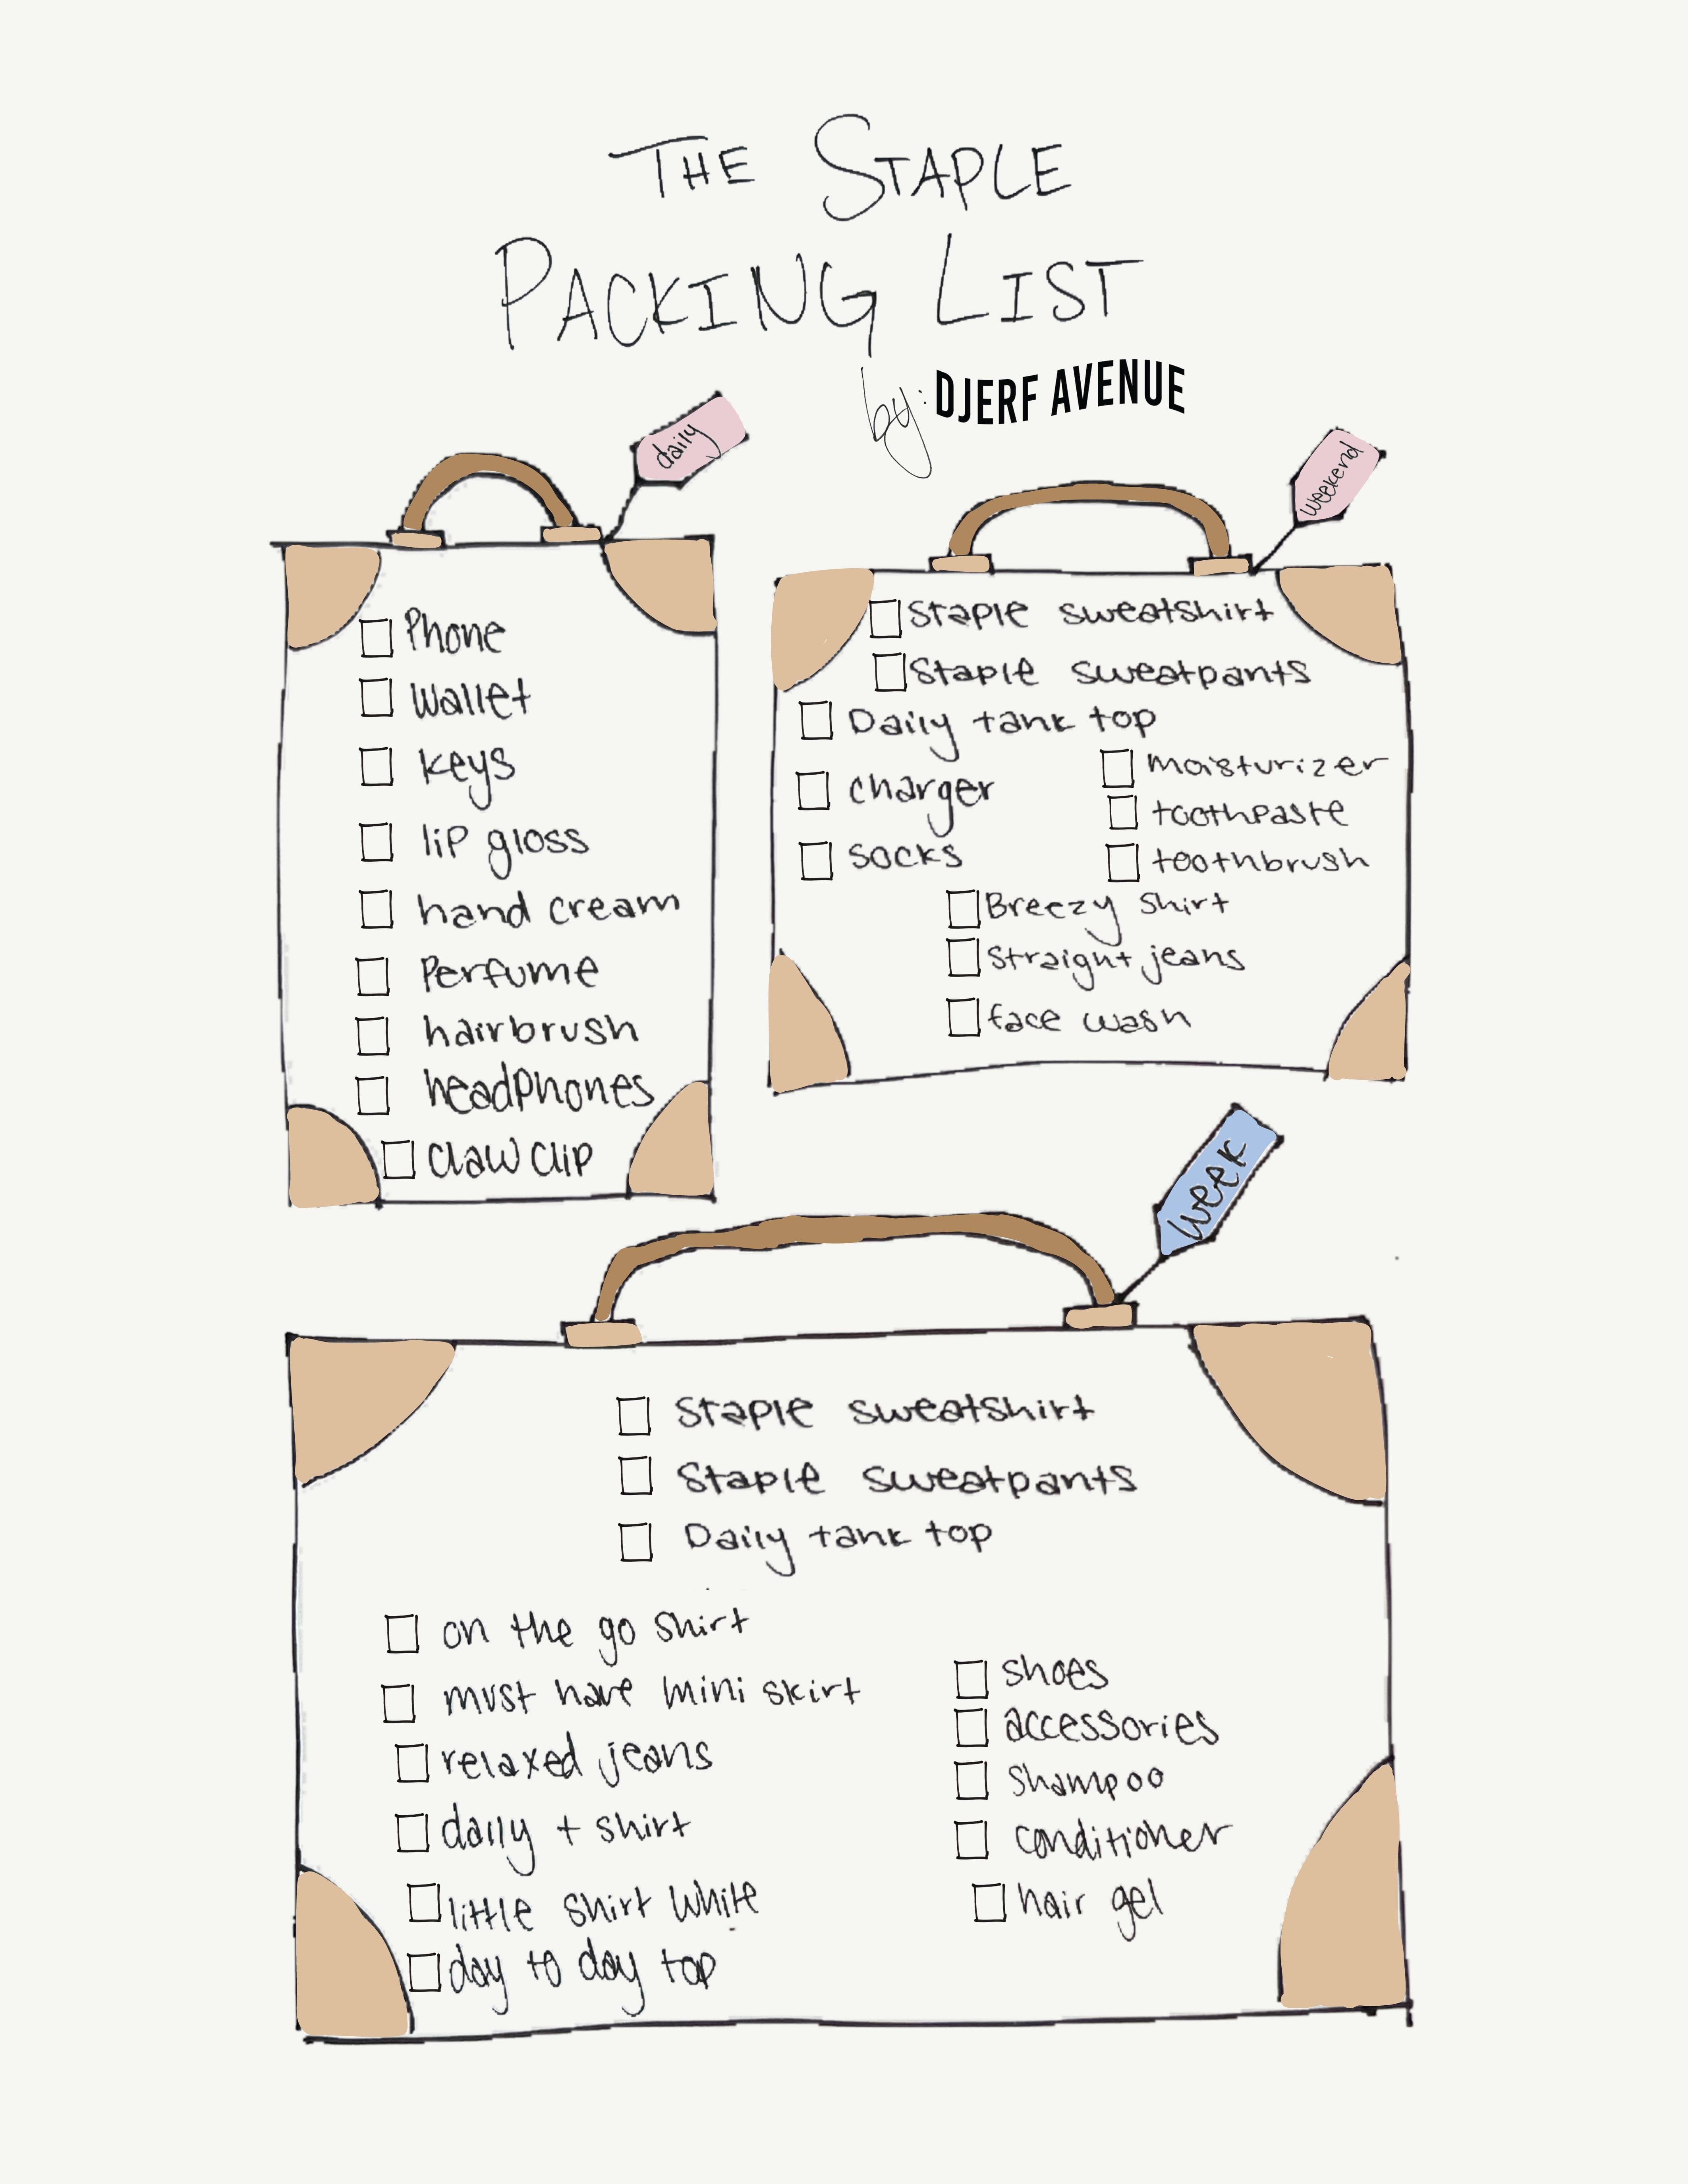 THE STAPLE
PACKING LIST
by: DJERF AVENUE
daily
Phone
wallet
keys
lip gloss
hand cream
Perfume
hairbrush
headphones
claw clip
weekend
Staple sweatshirt
Staple sweatpants
Daily tank top
charger
socks
moisturizer
toothpaste
toothbrush
Breezy shirt
straight jeans
face wash
week
Staple sweatshirt
Staple sweatpants
Daily tank top
on the go shirt
must have mini skirt
relaxed jeans
daily t shirt
little shirt white
day to day top
shoes
accessories
shampoo
conditioner
hair gel